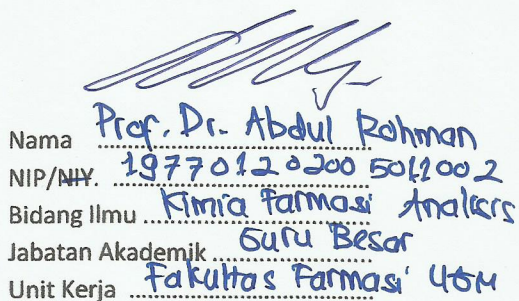 Nama Prof. Dr. Abdul Rohman
NIP/NIY. 19770120200 5011002
Bidang Ilmu Kimia Farmasi Analisis
Jabatan Akademik Guru Besar
Unit Kerja Fakultas Farmasi UGM